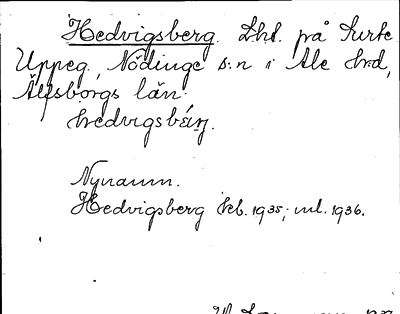 Hedvigsberg. Lht. på Surte
Uppeg, Nödinge s:n i Ale hrd,
Älvsborgs län.
hedvigsbärj.
Nynamn.
Hedvigsberg 1935; 1936.